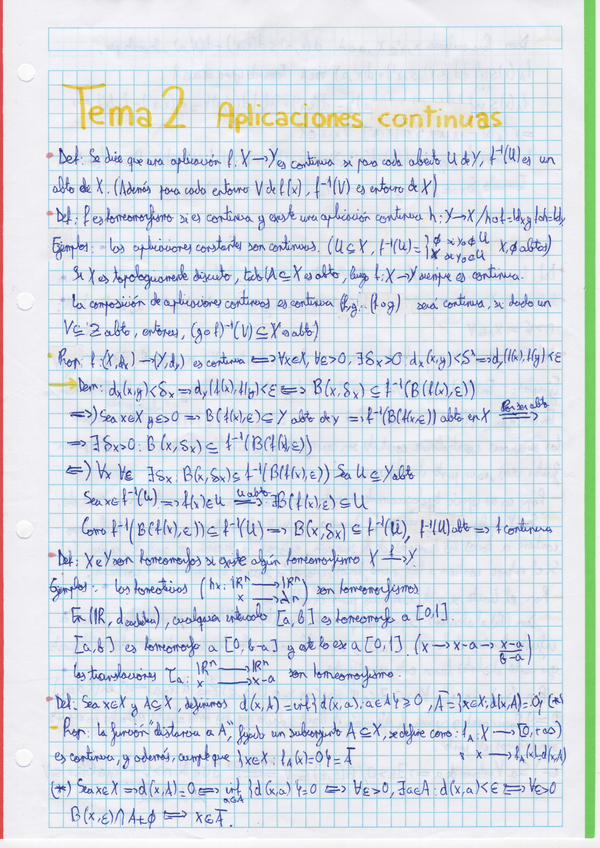 Tema 2 Aplicaciones continuas
• Def: Se dice que una aplicación f: X→Y es continua si para cada abierto U de Y, f⁻¹(U) es un
abto de X. (Además para cada entorno V de f(x), f⁻¹(V) es entorno de X)
• Def: f es homeomorfismo si es continua y existe una aplicación continua h: Y→X / h∘f=Id_X y f∘h=Id_Y
Ejemplos: - las aplicaciones constantes son continuas. (U⊆X, f⁻¹(U)={∅ si y₀∉U X si y₀∈U X,∅ abtos)
Si X es topológicamente discreto, todo A⊆X es abto, luego f: X→Y siempre es continua.
- La composición de aplicaciones continuas es continua (f, g: (f∘g) será continua, si dado un
V⊆Z abto, entonces, (g∘f)⁻¹(V)⊆X es abto)
• Prop: f: (X,d_X)→(Y,d_Y) es continua ⟺ ∀x∈X, ∀ε>0, ∃δ_x>0 d_x(x,y)<δ_x ⟹ d_y(f(x),f(y))<ε
→ Dem: d_x(x,y)<δ_x ⟹ d_y(f(x),f(y))<ε ⟺ B(x,δ_x)⊆f⁻¹(B(f(x),ε))
⟹) Sea x∈X y ε>0 ⟹ B(f(x),ε)⊆Y abto de y ⟹ f⁻¹(B(f(x),ε)) abto en X Por ser abto ⟹
⟹ ∃δ_x>0: B(x,δ_x)⊆f⁻¹(B(f(x),ε))
⟸) ∀x ∀ε ∃δ_x: B(x,δ_x)⊆f⁻¹(B(f(x),ε)) Sea U⊆Y abto
Sea x∈f⁻¹(U) ⟹ f(x)∈U U abto ⟹ ∃B(f(x),ε)⊆U
Como f⁻¹(B(f(x),ε))⊆f⁻¹(U) ⟹ B(x,δ_x)⊆f⁻¹(U), f⁻¹(U) abto ⟹ f continua
• Def: X e Y son homeomorfos si existe algún homeomorfismo X →f Y.
Ejemplos: - las homotecias (h_λ: ℝⁿ→ℝⁿ x→λx) son homeomorfismos
- En (ℝ, d euclídea), cualquier intervalo [a,b] es homeomorfo a [0,1].
[a,b] es homeomorfo a [0,b-a] y este lo es a [0,1]. (x→x-a→(x-a)/(b-a))
- Las translaciones τ_a: ℝⁿ→ℝⁿ x→x-a son homeomorfismo.
• Def: Sea x∈X y A⊆X, definimos d(x,A)=inf{d(x,a); a∈A}≥0, Ā={x∈X: d(x,A)=0} (*)
- Prop: La función "distancia a A", fijado un subconjunto A⊆X, se define como: f_A: X→[0,+∞)
es continua, y además, cumple que {x∈X: f_A(x)=0}=Ā x→f_A(x)=d(x,A)
(*) Sea x∈X ⟹ d(x,A)=0 ⟺ inf a∈A {d(x,a)}=0 ⟺ ∀ε>0, ∃a∈A: d(x,a)<ε ⟺ ∀ε>0
B(x,ε)∩A≠∅ ⟺ x∈Ā.